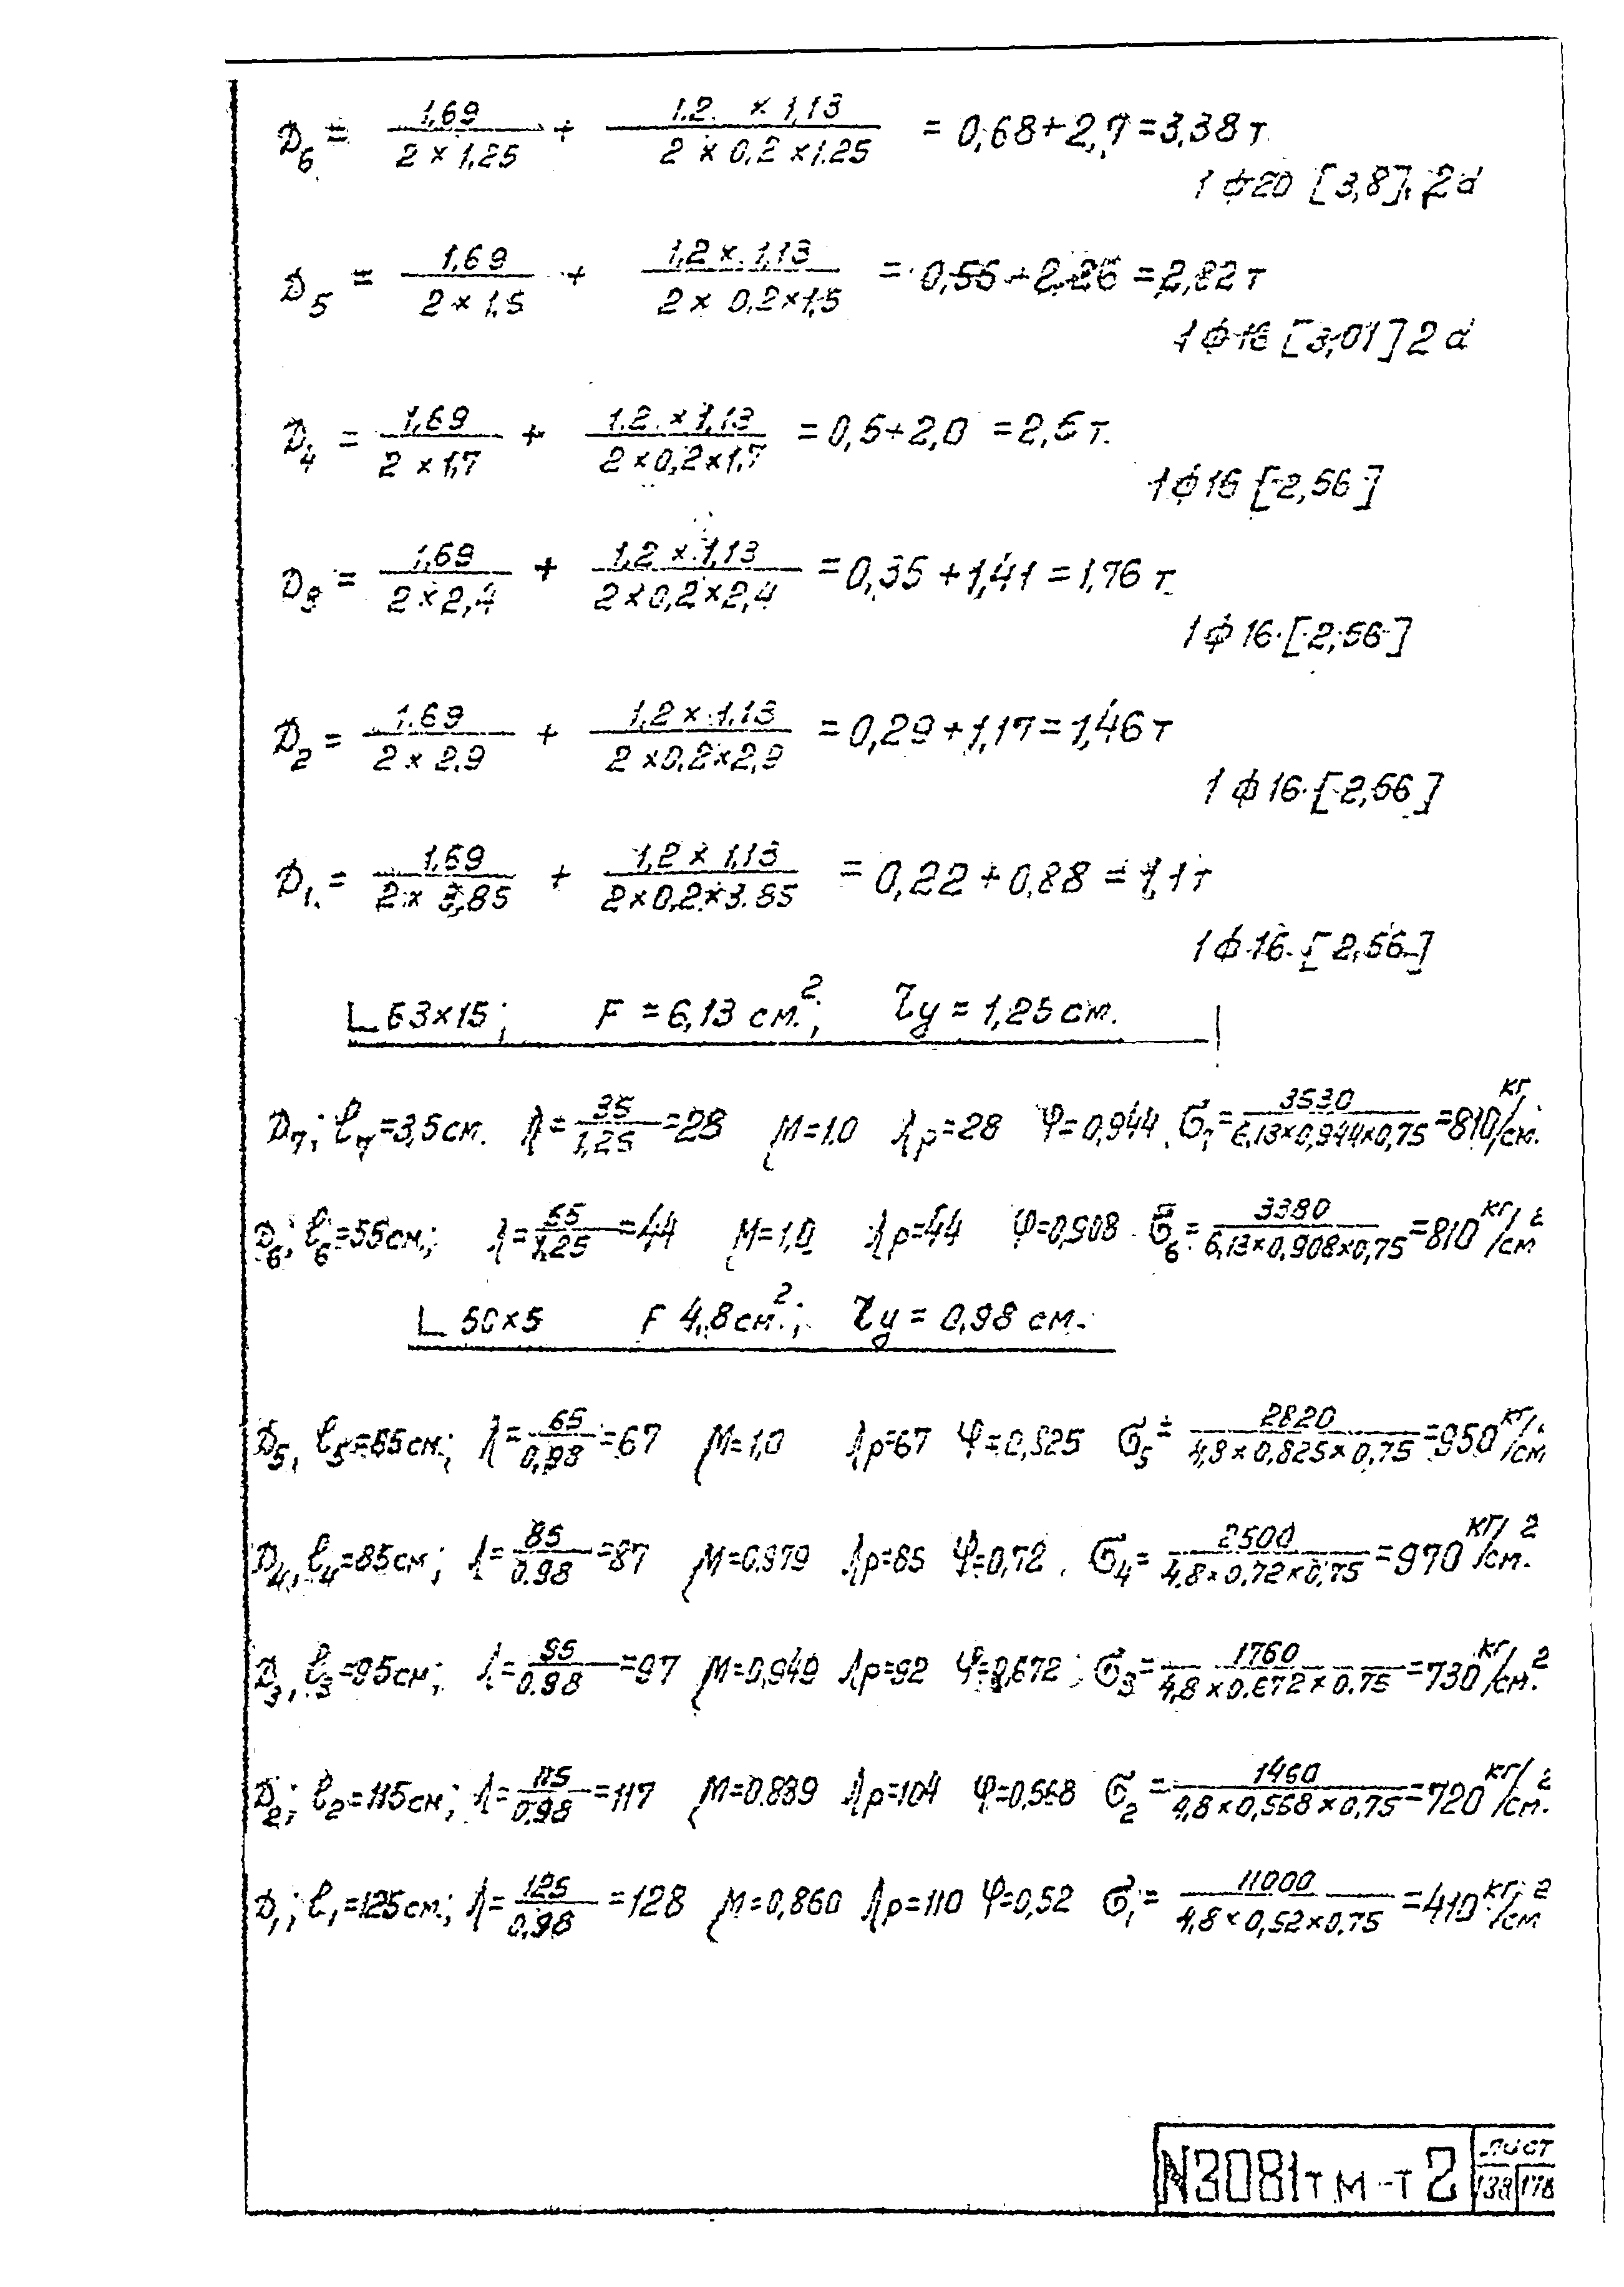 D₆ = 1,69 / 2 × 1,25 + 1.2. × 1,13 / 2 × 0,2 × 1.25 = 0,68 + 2,7 = 3,38 т.
1 ф 20 [3,8], 2d
D₅ = 1,69 / 2 × 1,5 + 1,2 × 1,13 / 2 × 0,2 × 1,5 = 0,56 + 2,26 = 2,82 т
1 ф 16 [3,01] 2d
D₄ = 1,69 / 2 × 1,7 + 1.2 × 1,13 / 2 × 0,2 × 1,7 = 0,5 + 2,0 = 2,5 т.
1 ф 16 [2,56]
D₃ = 1,69 / 2 × 2,4 + 1,2 × 1,13 / 2 × 0,2 × 2,4 = 0,35 + 1,41 = 1,76 т.
1 ф 16 [2,56]
D₂ = 1.69 / 2 × 2.9 + 1,2 × 1.13 / 2 × 0,2 × 2,9 = 0,29 + 1,17 = 1,46 т
1 ф 16 [2,56]
D₁ = 1,69 / 2 × 3,85 + 1,2 × 1,13 / 2 × 0,2 × 3.85 = 0,22 + 0,88 = 1,1 т
1 ф 16 [2,56]
∟ 63×15; F = 6,13 см.²; τy = 1,25 см.
D₇; ℓ₇ = 3,5 см. λ = 35 / 1,25 = 28 μ = 1.0 λр = 28 φ = 0,944 . σ₇ = 3530 / 6,13×0,944×0,75 = 810 кг/см.
D₆, ℓ₆ = 55 см.; λ = 55 / 1,25 = 44 μ = 1,0 λр = 44 φ = 0,908 σ₆ = 3380 / 6,13×0,908×0,75 = 810 кг/см²
∟ 50×5 F 4,8 см².; τy = 0,98 см.
D₅, ℓ₅ = 65 см.; λ = 65 / 0,98 = 67 μ = 1,0 λр = 67 φ = 0,825 σ₅ = 2820 / 4,8×0,825×0,75 = 950 кг/см
D₄, ℓ₄ = 85 см; λ = 85 / 0.98 = 87 μ = 0.979 λр = 85 φ = 0,72 . σ₄ = 2500 / 4,8×0,72×0,75 = 970 кг/см.²
D₃, ℓ₃ = 95 см; λ = 95 / 0.98 = 97 μ = 0,949 λр = 92 φ = 0,672 ; σ₃ = 1760 / 4,8×0.672×0.75 = 730 кг/см.²
D₂; ℓ₂ = 115 см; λ = 115 / 0.98 = 117 μ = 0.889 λр = 104 φ = 0,568 σ₂ = 1460 / 4,8×0,568×0,75 = 720 кг/см.²
D₁; ℓ₁ = 125 см.; λ = 125 / 0,98 = 128 μ = 0,860 λр = 110 φ = 0,52 σ₁ = 11000 / 4,8×0,52×0.75 = 410 кг/см²
N3081тм-т2
лист
138 178